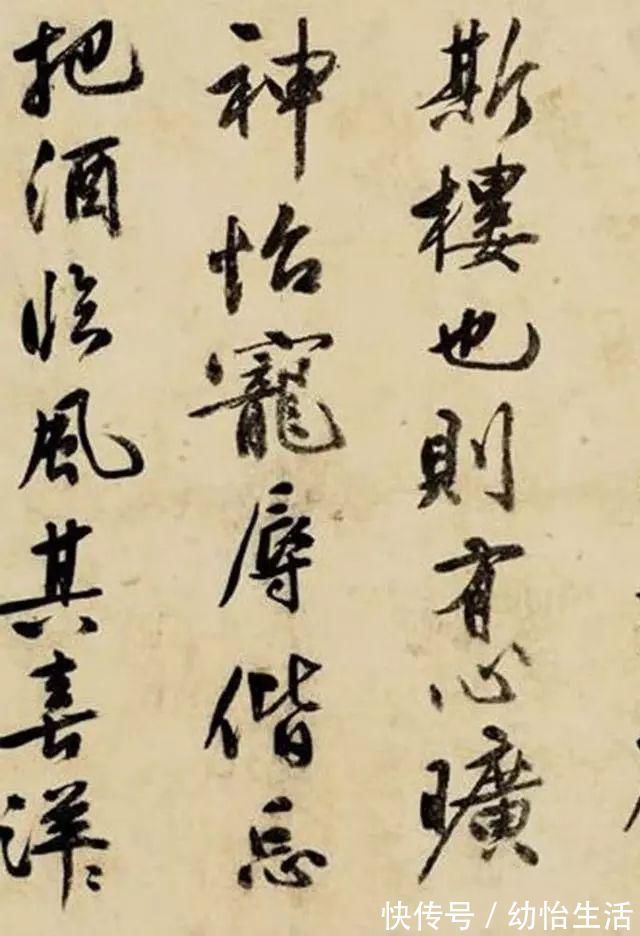 斯樓也則有心曠
神怡寵辱偕忘
把酒臨風其喜洋〻
快传号/幼怡生活